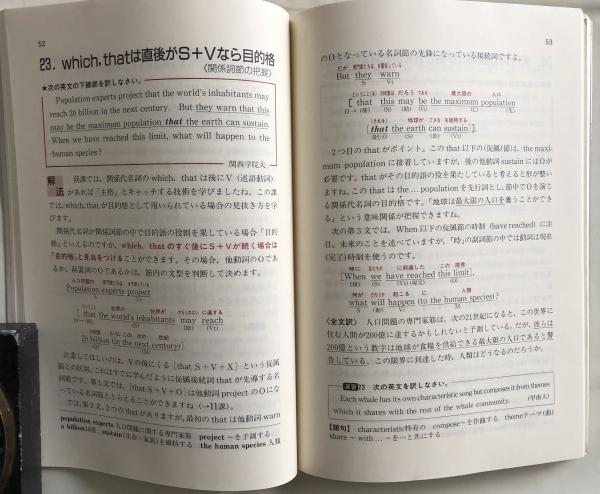 52
23. which, thatは直後がS+Vなら目的格
《関係詞節の把握》
★次の英文の下線部を訳しなさい。
Population experts project that the world's inhabitants may
reach 20 billion in the next century. But they warn that this
may be the maximum population that the earth can sustain.
When we have reached this limit, what will happen to the
human species?
関西学院大
解法
前課では、関係代名詞のwhich, thatは後にV（述語動詞）
があれば「主格」とキャッチする技術を学びましたね。この課
では、which, thatが目的格として用いられている場合の見抜き方を学
びます。
関係代名詞が関係詞節の中で目的語の役割を果している場合「目的
格」といえるのですが、which, thatのすぐ後にS+Vが続く場合は
「目的格」と見当をつけることができます。その場合、他動詞のOであ
るか、前置詞のOであるかは、節内の文型を判断して決めます。
Population experts project
S
[that the world's inhabitants may reach
20 billion (in the next century).
注意してほしいのは、Vの後にくる [that S+V+X] という従属
節との区別。これはすでに学んだように従属接続詞thatが先導する名
詞節です。第1文では、[that S+V+O] は他動詞projectのOにな
っている名詞節ととらえることができますね（→11課）。
では、第2文。2つのthatがありますが、最初のthatは他動詞warn
population experts 人口問題に関する専門家筋 project ～を予測する
a billion10億 sustain(生命・家族)を維持する the human species 人類
53
のOとなっている名詞節の先鋒になっている接続詞ですよ。
But they warn
S Vt
[that this may be the maximum population
[that the earth can sustain]].
2つ目のthatがポイント。このthat以下の(従属)節は、the maxi-
mum populationに接着していますが、後の他動詞sustainにはOが
必要です。thatがその目的語の役を果たしていると考えると形が整い
ますね。このthatはthe … populationを先行詞とし、節中でOを演じ
る関係代名詞の目的格です。「地球は最大限の人口を養うことができ
る」という意味関係が把握できますね。
次の第3文では、When以下の従属節の時制 (have reached) に注
目。未来のことを述べていますが、「時」の副詞節の中では動詞は現在
(完了)時制を使うのです。
[When we have reached this limit],
what will happen (to the human species)?
S Vi M
《全文訳》 人口問題の専門家筋は、次の21世紀になると、この世界に
住む人間が200億に達するかもしれないと予測している。だが、彼らは
200億という数字は地球が食糧を供給できる最大限の人口であると警
告している。この限界に到達した時、人類はどうなるのだろうか。
演習23 次の英文を訳しなさい。
Each whale has its own characteristic song but composes it from themes
which it shares with the rest of the whale community.
(甲南大)
【語句】 characteristic特有の compose～を作曲する themeテーマ(曲)
share ～ with … ～を…と共にする